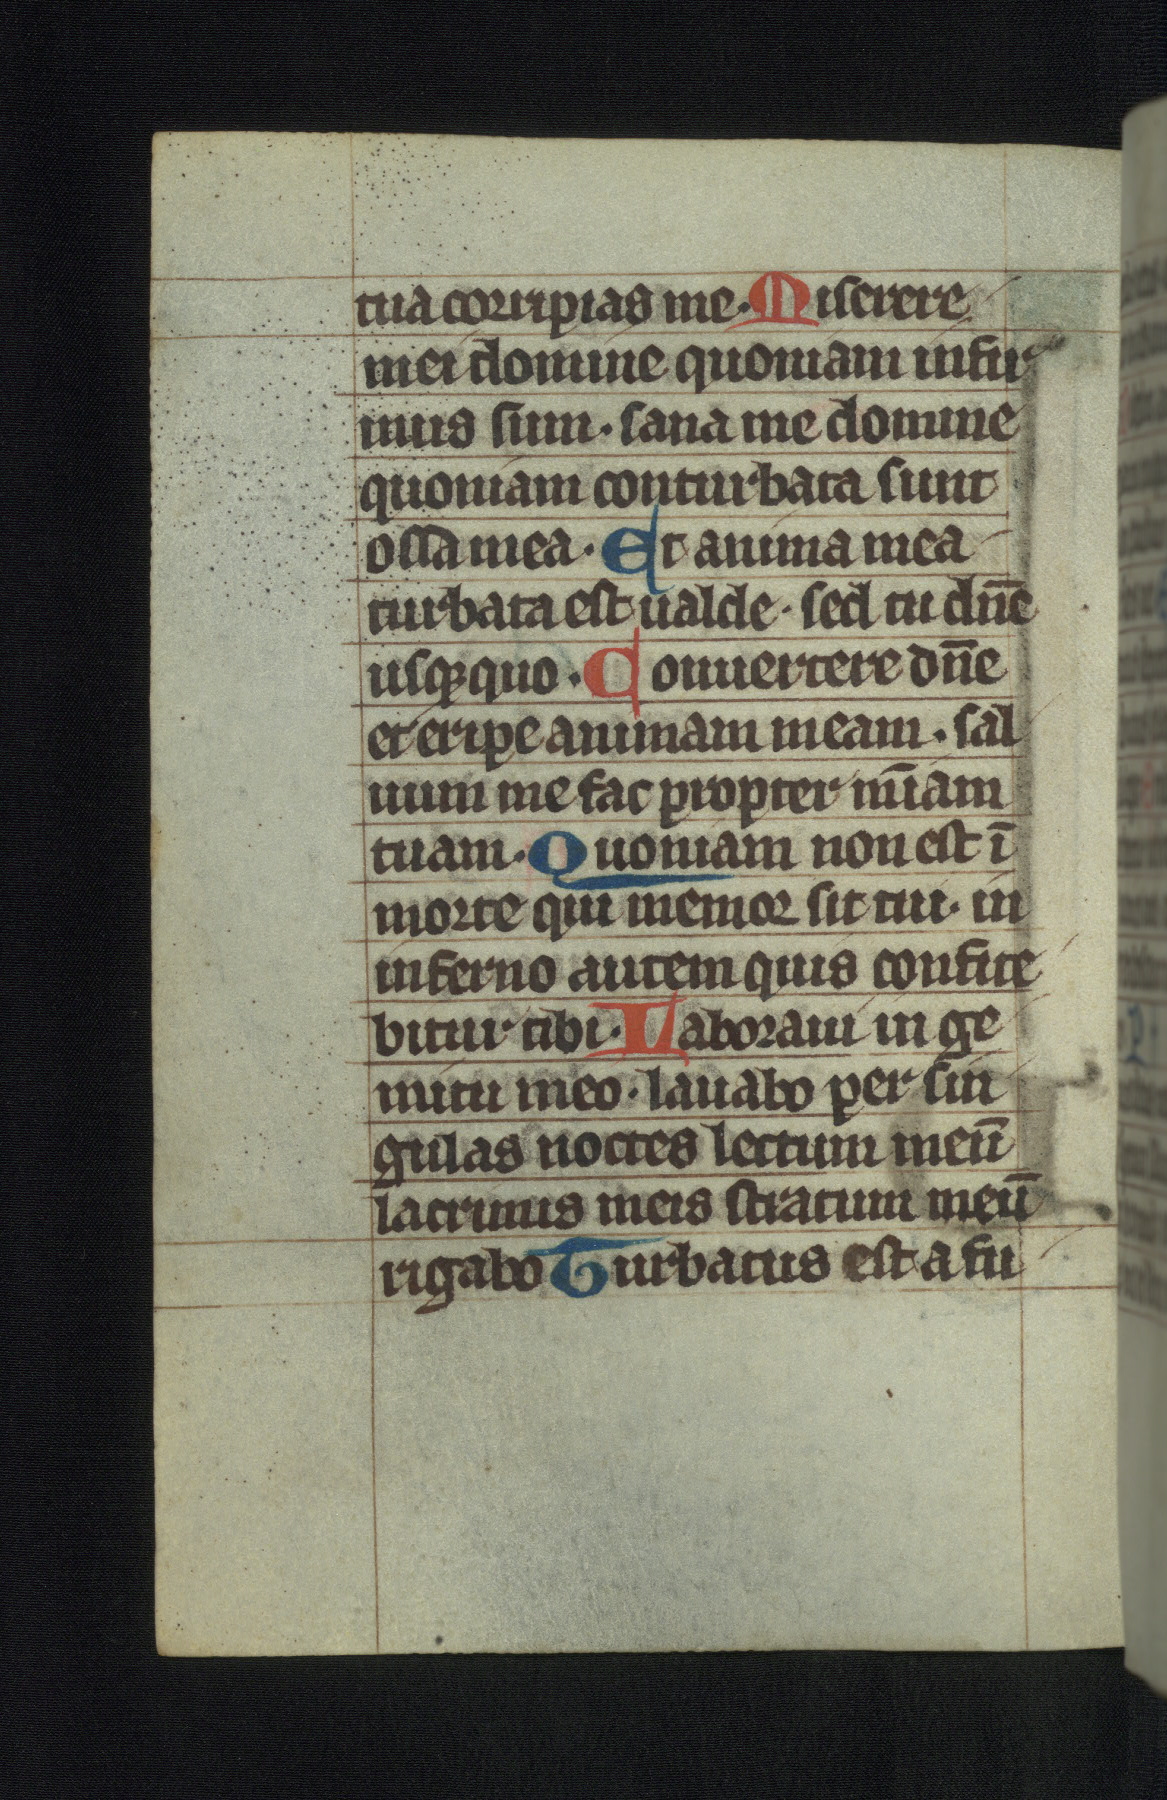 tua corripias me · Miserere
mei domine quoniam infir
mus sum · sana me domine
quoniam conturbata sunt
ossa mea · Et anima mea
turbata est ualde · sed tu dn̄e
usqꝫ quo · Conuertere dn̄e
et eripe animam meam · sal
uum me fac propter mīam
tuam · Quoniam non est ī
morte qui memor sit tui · in
inferno autem quis confite
bitur tibi · Laboraui in ge
mitu meo · lauabo per sin
gulas noctes lectum meū
lacrimis meis stratum meū
rigabo Turbatus est a fu